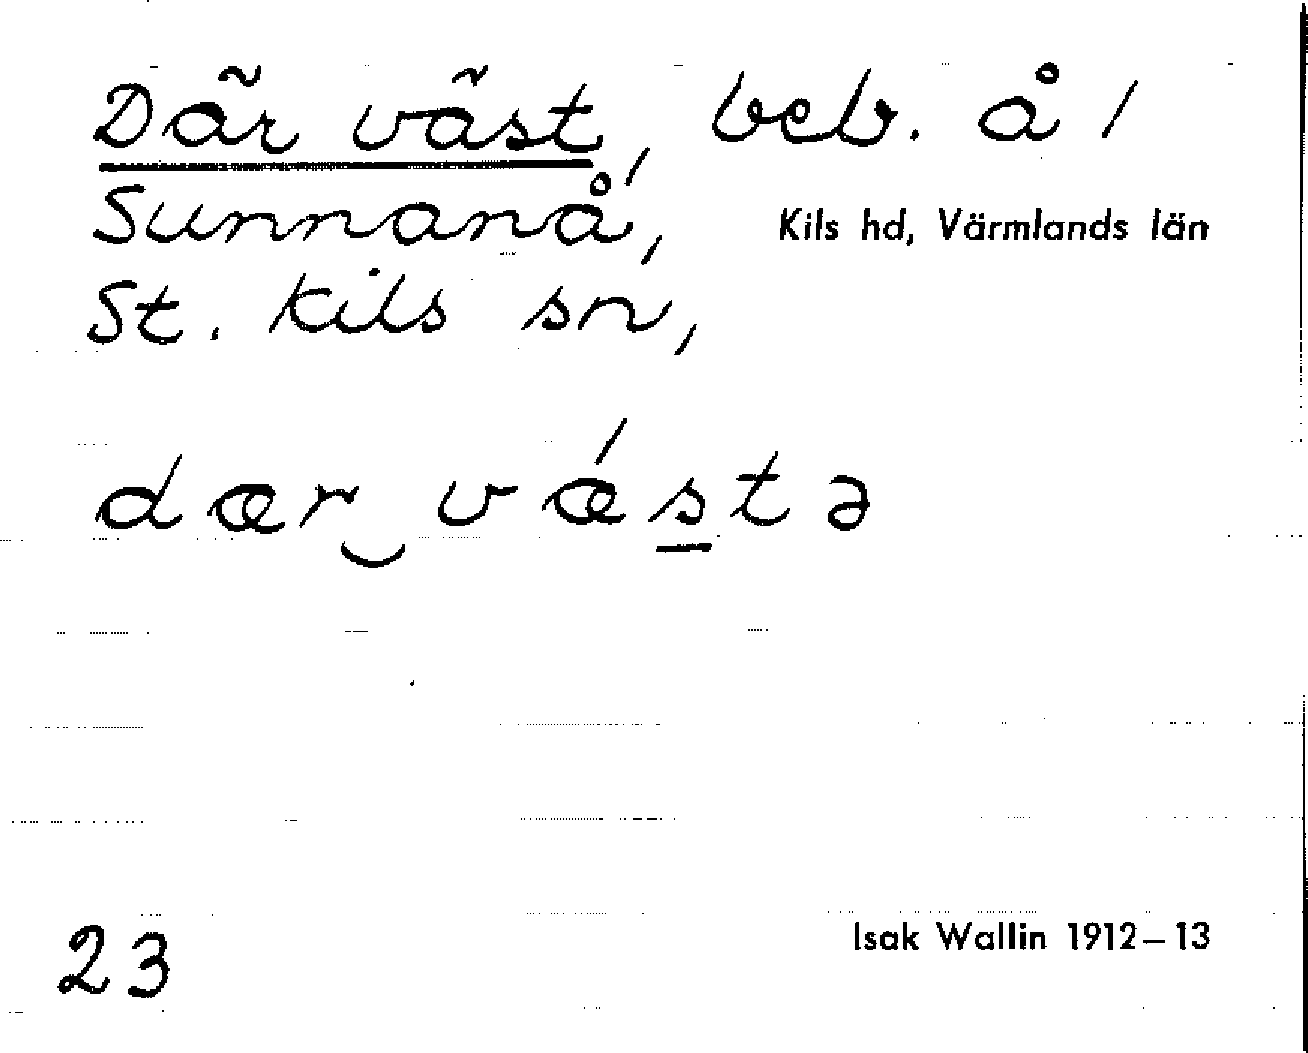 Där väst, beb. å /
Sunnanå, Kils hd, Värmlands län
St. Kils sn,
dær‿vǽs̲tə
23 Isak Wallin 1912–13